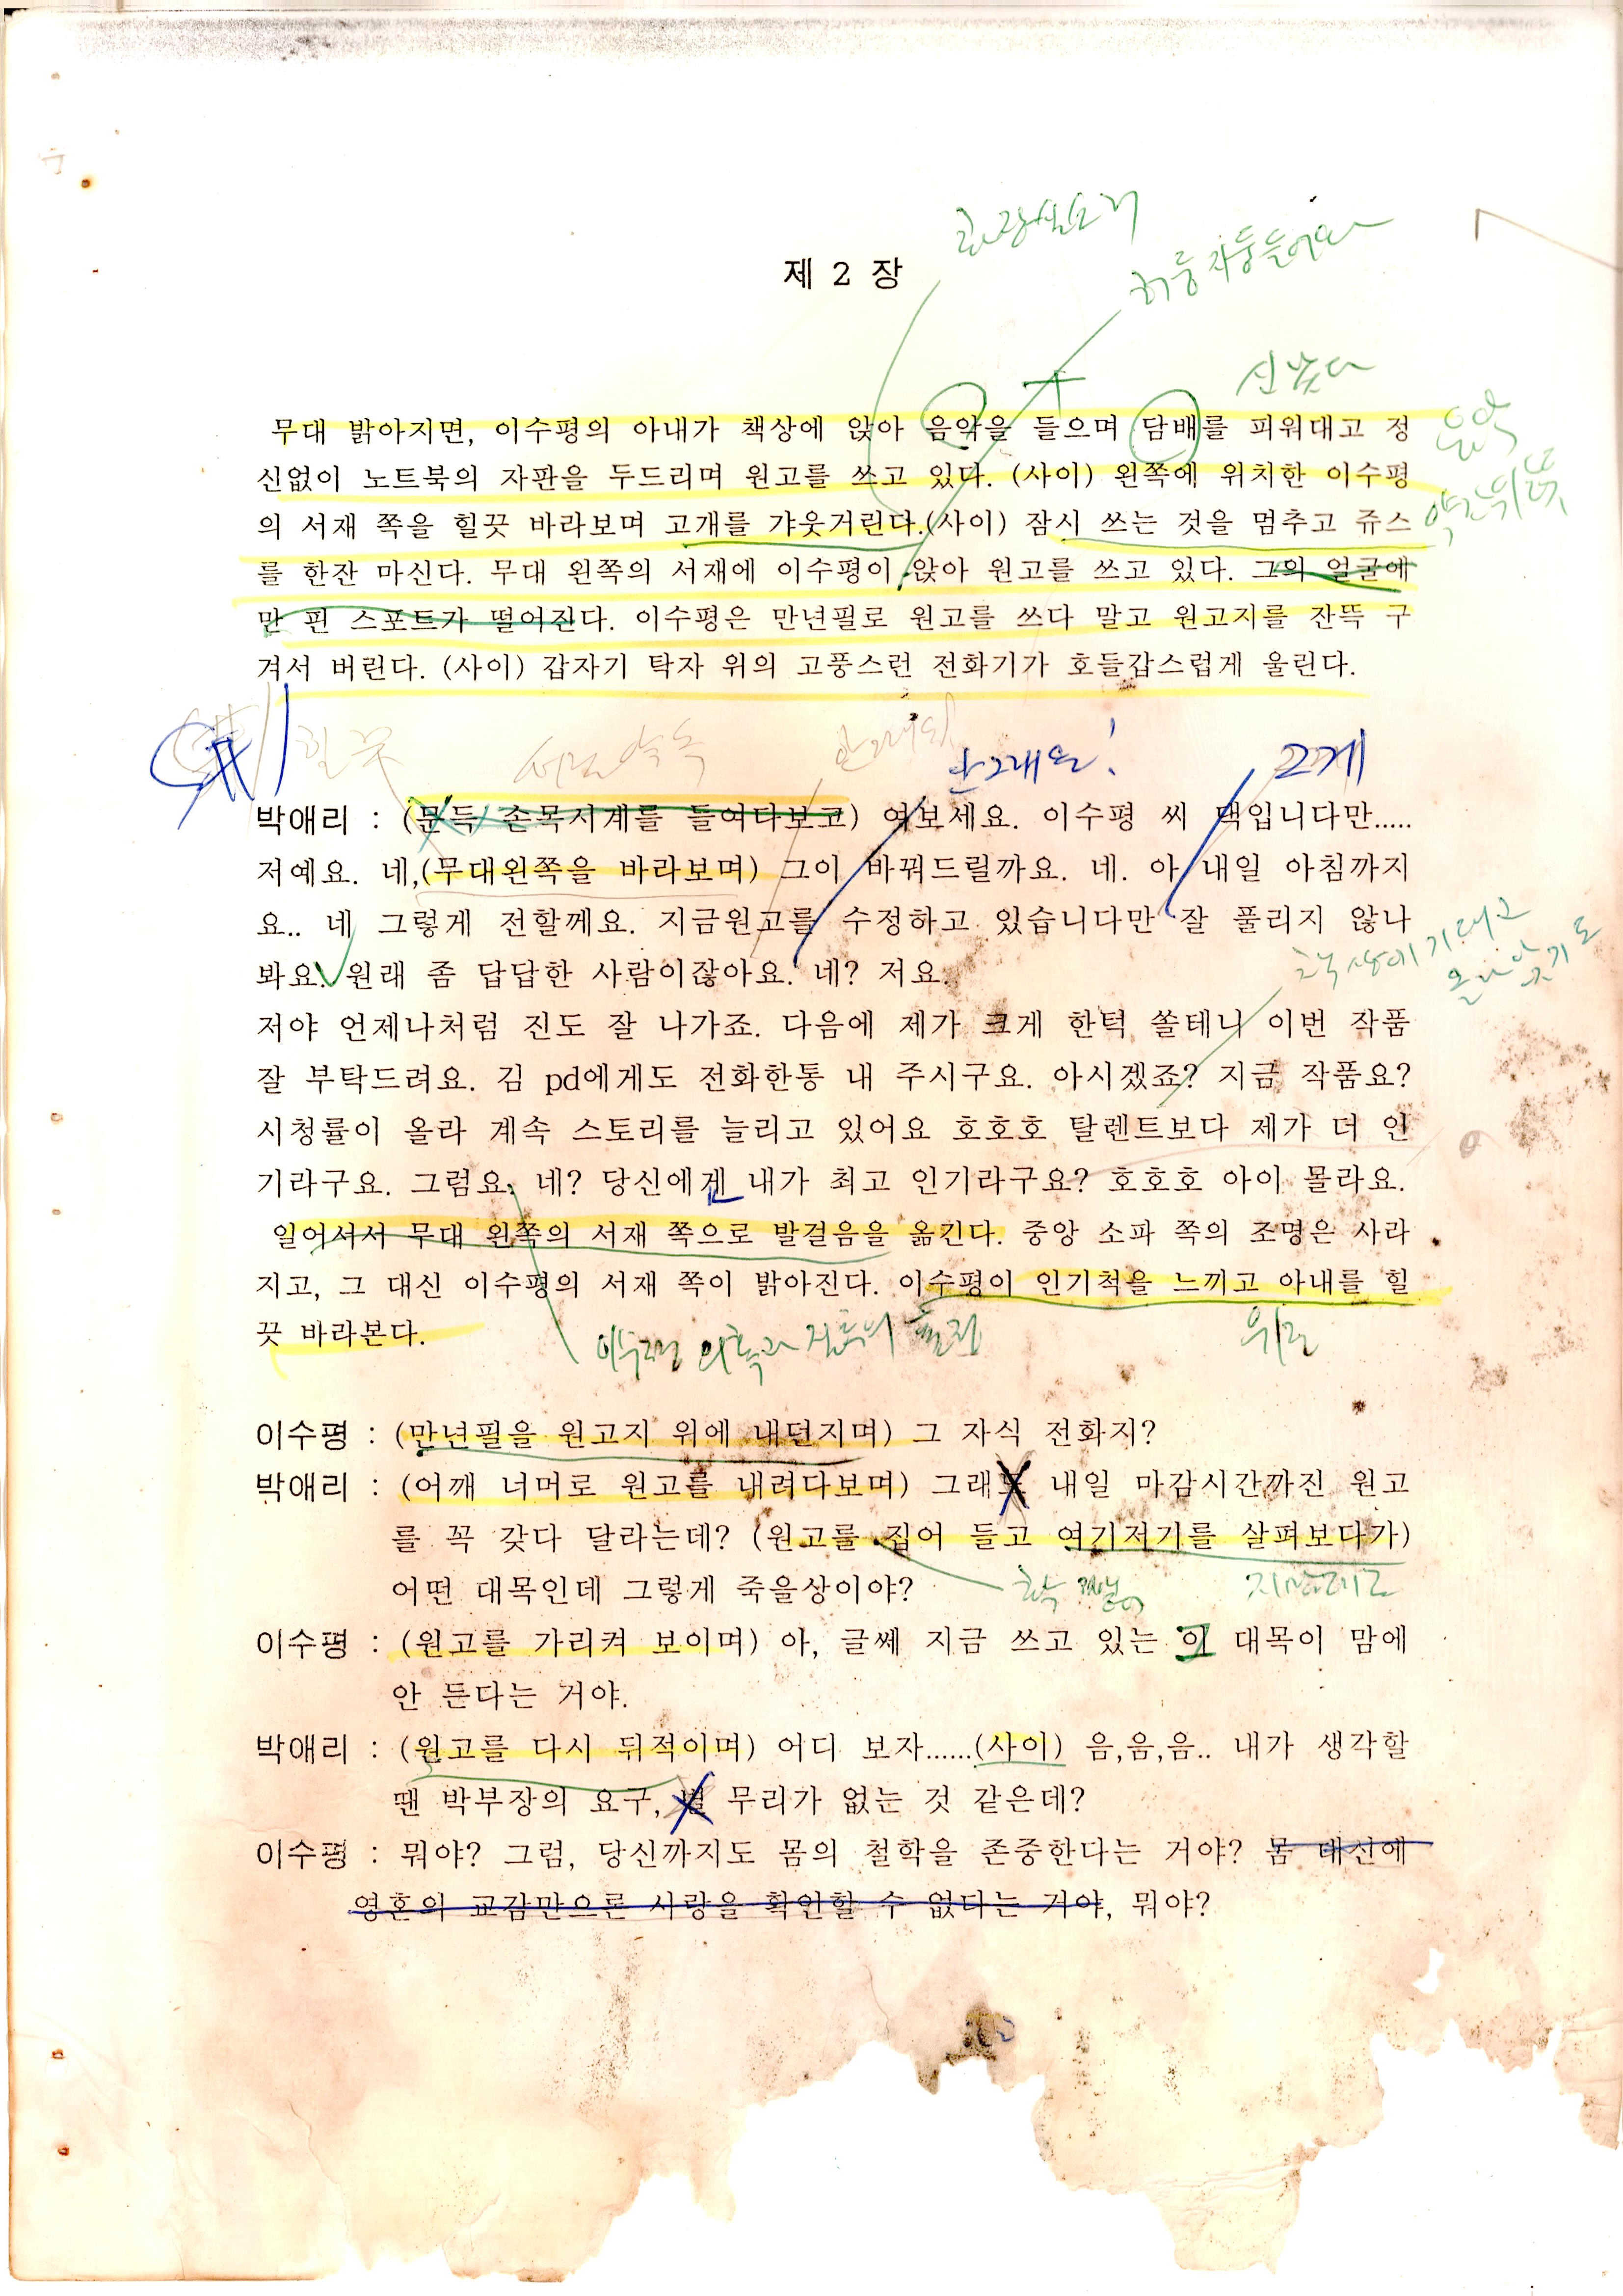 화장실소리
허둥지둥들어오
제 2 장
신났다
무대 밝아지면, 이수평의 아내가 책상에 앉아 음악을 들으며 담배를 피워대고 정
음악
신없이 노트북의 자판을 두드리며 원고를 쓰고 있다. (사이) 왼쪽에 위치한 이수평
의 서재 쪽을 힐끗 바라보며 고개를 갸웃거린다.(사이) 잠시 쓰는 것을 멈추고 쥬스
를 한잔 마신다. 무대 왼쪽의 서재에 이수평이 앉아 원고를 쓰고 있다. 그의 얼굴에
만 핀 스포트가 떨어진다. 이수평은 만년필로 원고를 쓰다 말고 원고지를 잔뜩 구
겨서 버린다. (사이) 갑자기 탁자 위의 고풍스런 전화기가 호들갑스럽게 울린다.
힐끗
안그래요! 그게
박애리 : (문득 손목시계를 들여다보고) 여보세요. 이수평 씨 댁입니다만.....
저예요. 네,(무대왼쪽을 바라보며) 그이 바꿔드릴까요. 네. 아 내일 아침까지
요.. 네 그렇게 전할께요. 지금원고를 수정하고 있습니다만 잘 풀리지 않나
봐요. 원래 좀 답답한 사람이잖아요. 네? 저요.
책상에 기대고
저야 언제나처럼 진도 잘 나가죠. 다음에 제가 크게 한턱 쏠테니 이번 작품
잘 부탁드려요. 김 pd에게도 전화한통 내 주시구요. 아시겠죠? 지금 작품요?
시청률이 올라 계속 스토리를 늘리고 있어요 호호호 탈렌트보다 제가 더 인
기라구요. 그럼요. 네? 당신에겐 내가 최고 인기라구요? 호호호 아이 몰라요.
일어서서 무대 왼쪽의 서재 쪽으로 발걸음을 옮긴다. 중앙 소파 쪽의 조명은 사라
지고, 그 대신 이수평의 서재 쪽이 밝아진다. 이수평이 인기척을 느끼고 아내를 힐
끗 바라본다.
이수평 : (만년필을 원고지 위에 내던지며) 그 자식 전화지?
박애리 : (어깨 너머로 원고를 내려다보며) 그래 내일 마감시간까진 원고
를 꼭 갖다 달라는데? (원고룰 집어 들고 여기저기를 살펴보다가)
어떤 대목인데 그렇게 죽을상이야?
이수평 : (원고를 가리켜 보이며) 아, 글쎄 지금 쓰고 있는 이 대목이 맘에
안 든다는 거야.
박애리 : (원고를 다시 뒤적이며) 어디 보자......(사이) 음,음,음.. 내가 생각할
땐 박부장의 요구, 별 무리가 없는 것 같은데?
이수평 : 뭐야? 그럼, 당신까지도 몸의 철학을 존중한다는 거야? 몸 대신에
영혼의 교감만으론 사랑을 확인할 수 없다는 거야, 뭐야?